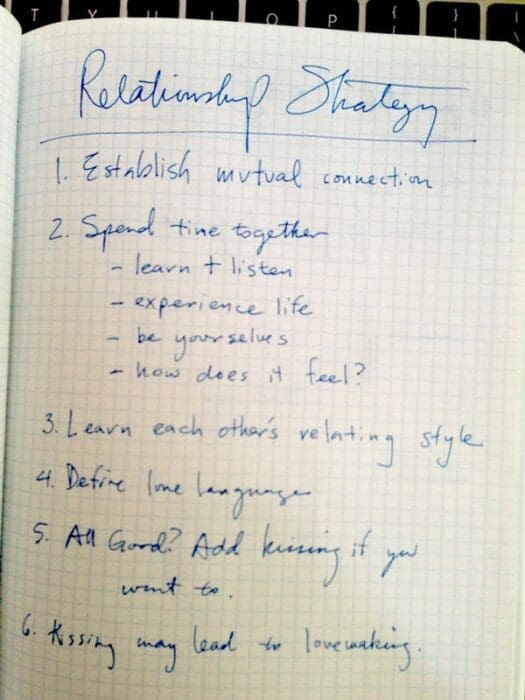 T Y O P { }
Relationship Strategy
1. Establish mutual connection
2. Spend time together
- learn + listen
- experience life
- be yourselves
- how does it feel?
3. Learn each other's relating style
4. Define love language
5. All Good? Add kissing if you
want to.
6. Kissing may lead to lovemaking.